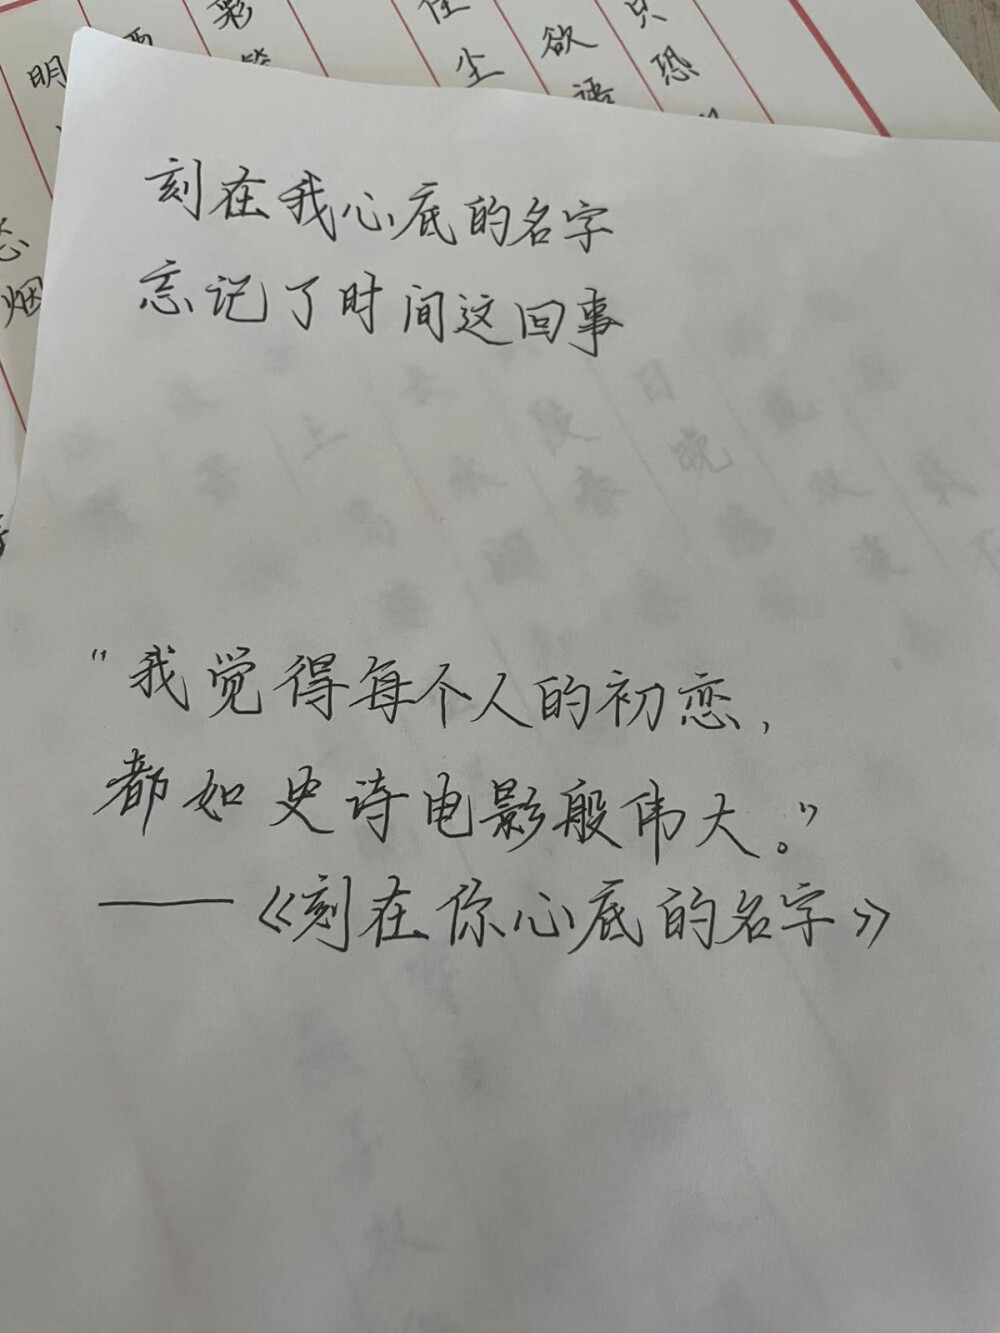 彩
住
只
明
尘
欲
恐
语
烟
刻在我心底的名字
忘记了时间这回事
"我觉得每个人的初恋，
都如史诗电影般伟大。"
——《刻在你心底的名字》